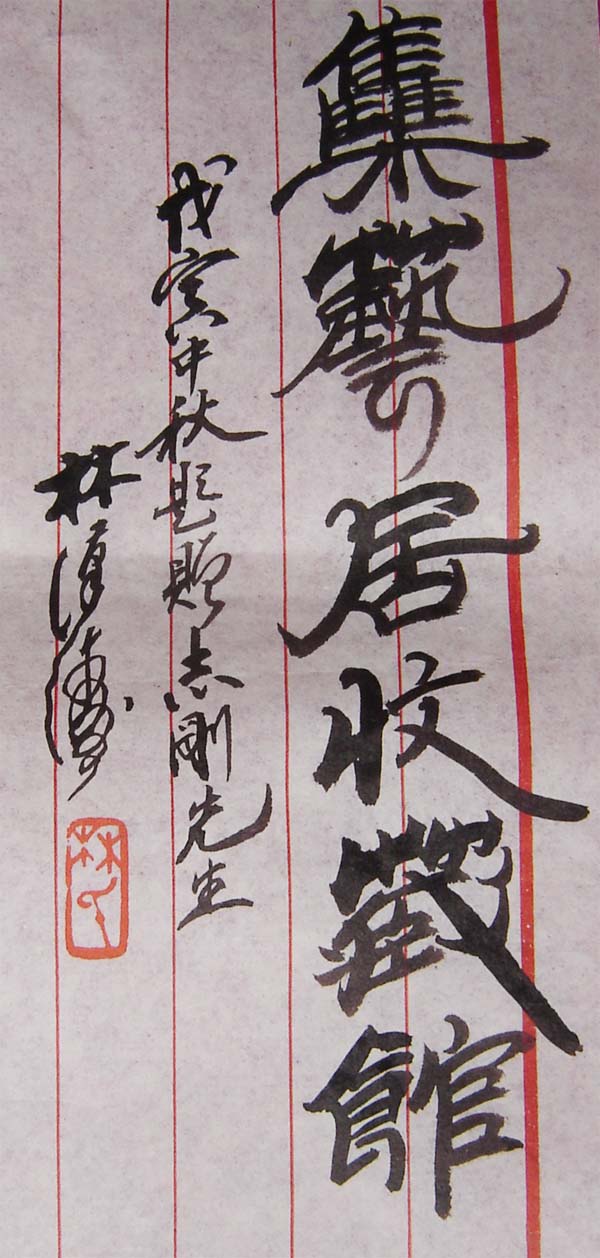 集藝居收藏館
戊寅中秋題贈志剛先生
林漢濤